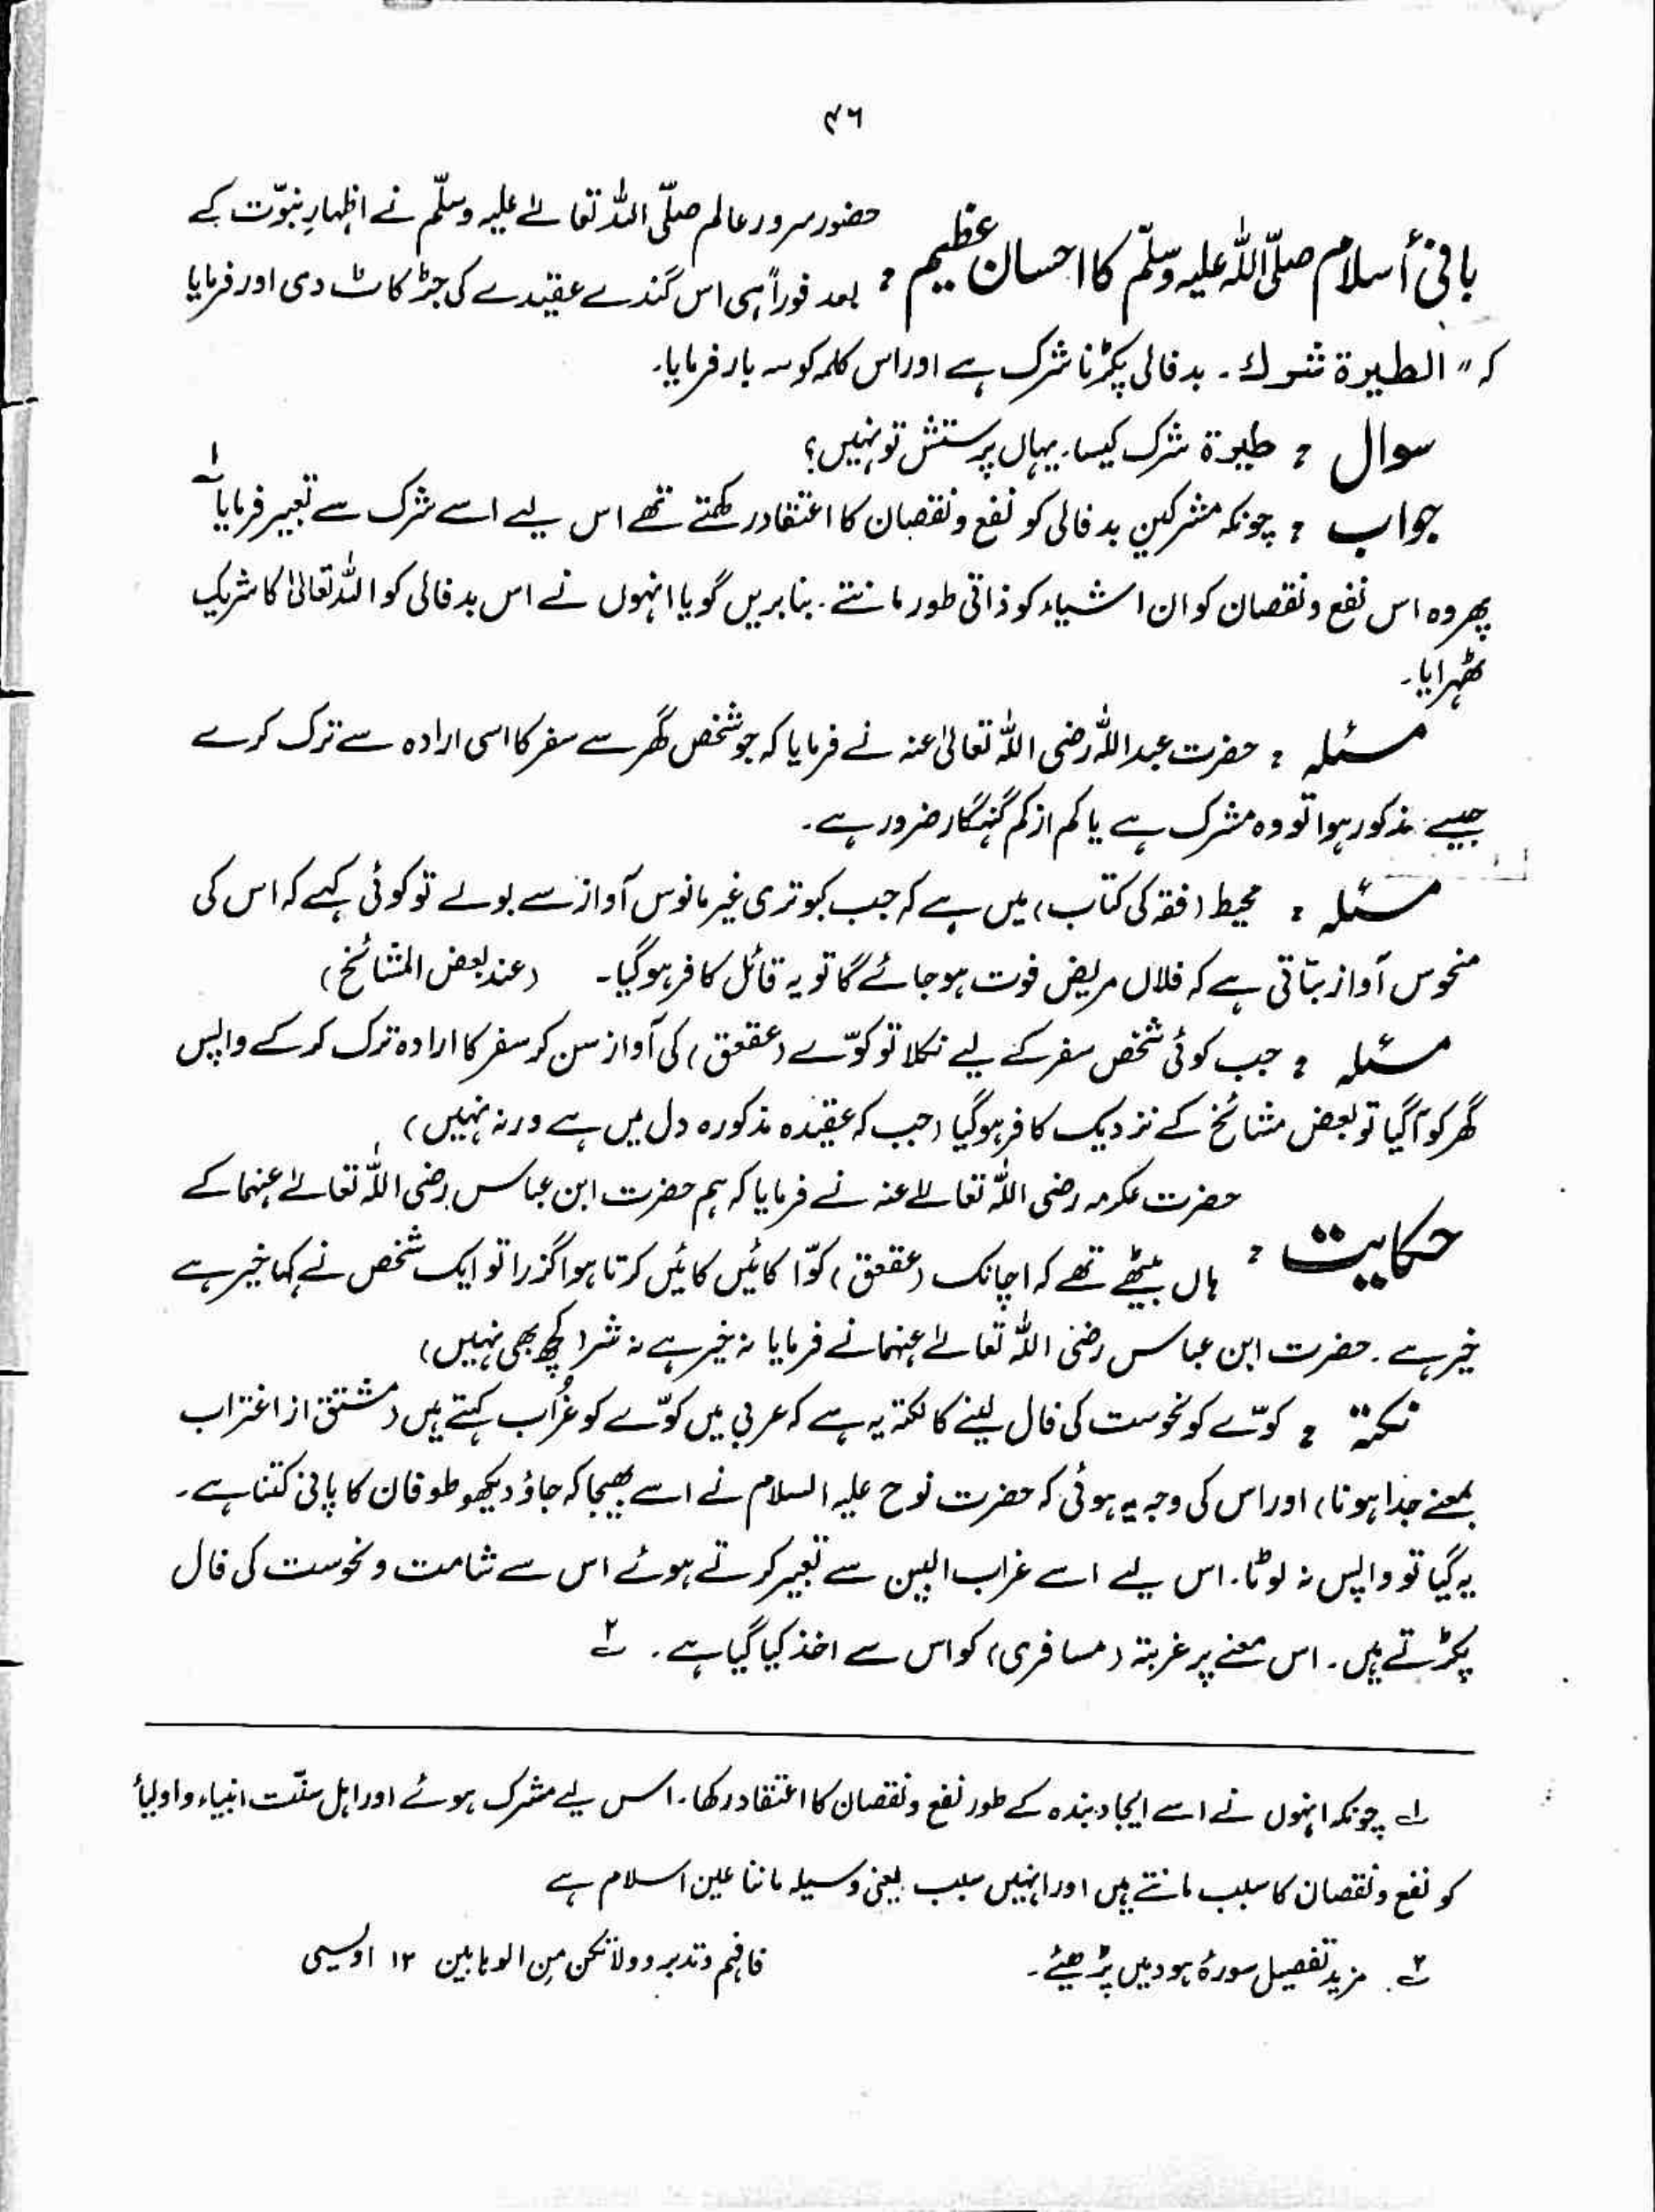 ۴۶
بانیٔ اسلام صلّی اللہ علیہ وسلّم کا احسان عظیم : حضور سرور عالم صلّی اللہ تعالےٰ علیہ وسلّم نے اظہارِ نبوّت کے
بعد فوراً ہی اس گندے عقیدے کی جڑ کاٹ دی اور فرمایا
کہ " الطیرۃ شرك ۔ بدفالی پکڑنا شرک ہے اور اس کلمہ کو سہ بار فرمایا۔
سوال : طیرۃ شرک کیسا۔ یہاں پرستش تو نہیں؟
جواب : چونکہ مشرکین بدفالی کو نفع و نقصان کا اعتقاد رکھتے تھے اس لیے اسے شرک سے تعبیر فرمایا ؂۱
پھر وہ اس نفع و نقصان کو ان اشیاء کو ذاتی طور مانتے۔ بنا بریں گویا انہوں نے اس بدفالی کو اللہ تعالیٰ کا شریک
ٹھہرایا۔
مسئلہ : حضرت عبداللہ رضی اللہ تعالیٰ عنہ نے فرمایا کہ جو شخص گھر سے سفر کا اسی ارادہ سے ترک کرے
جیسے مذکور ہوا تو وہ مشرک ہے یا کم از کم گنہگار ضرور ہے۔
مسئلہ : محیط (فقہ کی کتاب) میں ہے کہ جب کبوتری غیر مانوس آواز سے بولے تو کوئی کہے کہ اس کی
منحوس آواز بتاتی ہے کہ فلاں مریض فوت ہو جائے گا تو یہ قائل کافر ہوگیا۔ (عند بعض المشائخ)
مسئلہ : جب کوئی شخص سفر کے لیے نکلا تو کوّے (عقعق) کی آواز سن کر سفر کا ارادہ ترک کر کے واپس
گھر کو آگیا تو بعض مشائخ کے نزدیک کافر ہوگیا (جب کہ عقیدہ مذکورہ دل میں ہے ورنہ نہیں)
حکایت : حضرت عکرمہ رضی اللہ تعالےٰ عنہ نے فرمایا کہ ہم حضرت ابن عباس رضی اللہ تعالےٰ عنہما کے
ہاں بیٹھے تھے کہ اچانک (عقعق) کوّا کائیں کائیں کرتا ہوا گزرا تو ایک شخص نے کہا خیر ہے
خیر ہے۔ حضرت ابن عباس رضی اللہ تعالےٰ عنہما نے فرمایا نہ خیر ہے نہ شر (کچھ بھی نہیں)
نکتہ : کوّے کو نحوست کی فال لینے کا نکتہ یہ ہے کہ عربی میں کوّے کو غُراب کہتے ہیں (مشتق از اغتراب
بمعنے جدا ہونا) اور اس کی وجہ یہ ہوئی کہ حضرت نوح علیہ السلام نے اسے بھیجا کہ جاؤ دیکھو طوفان کا پانی کتنا ہے۔
یہ گیا تو واپس نہ لوٹا۔ اس لیے اسے غراب البین سے تعبیر کرتے ہوئے اس سے شامت و نحوست کی فال
پکڑتے ہیں۔ اس معنے پر غربۃ (مسافری) کو اس سے اخذ کیا گیا ہے۔ ؂۲
؂۱ چونکہ انہوں نے اسے ایجاد بندہ کے طور نفع و نقصان کا اعتقاد رکھا۔ اس لیے مشرک ہوئے اور اہل سنّت انبیاء و اولیأ
کو نفع و نقصان کا سبب مانتے ہیں اور انہیں سبب یعنی وسیلہ ماننا عین اسلام ہے
؂۲۔ مزید تفصیل سورۂ ہود میں پڑھئے۔ فافہم و تدبر و ولا تکن من الوہابین ۱۲ اویسی